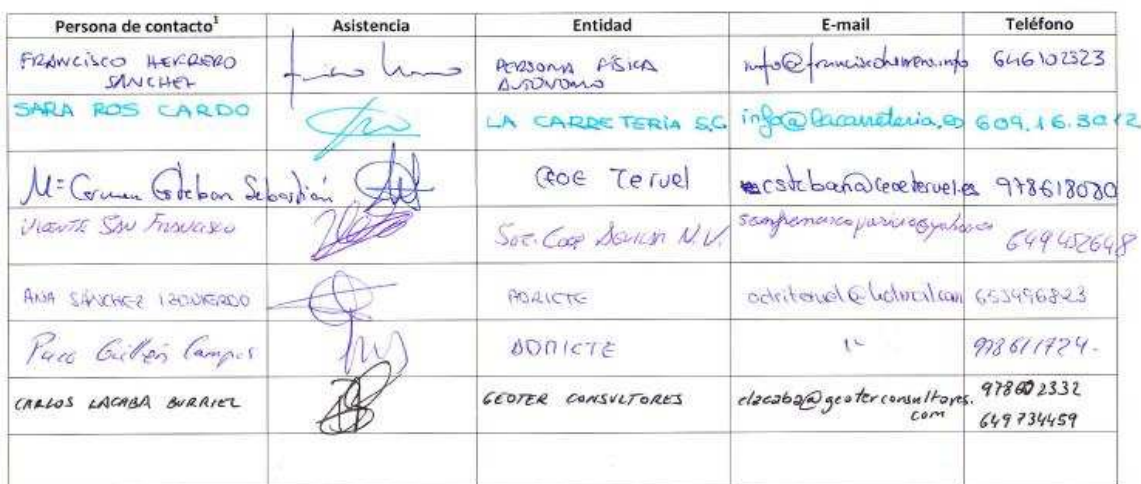 Persona de contacto¹ Asistencia Entidad E-mail Teléfono
FRANCISCO HERRERO SANCHEZ PERSONA FÍSICA AUTÓNOMO info@franciscoherrero.info 646102323
SARA ROS CARDO LA CARRETERÍA S.C. info@lacarreteria.es 609.16.30.12
Mª Carmen Esteban Sebastián CEOE Teruel cesteban@ceoeteruel.es 978618080
VICENTE SAN FRANCISCO Soc. Coop N.V. 649452648
ANA SÁNCHEZ IZQUIERDO ADRICTE adriteruel@hotmail.com 653496823
Paco Guillén Campos ADRICTE 978611724.
CARLOS LACABA BURRIEL GEOTER CONSULTORES clacaba@geoterconsultores.com 978602332
649734459